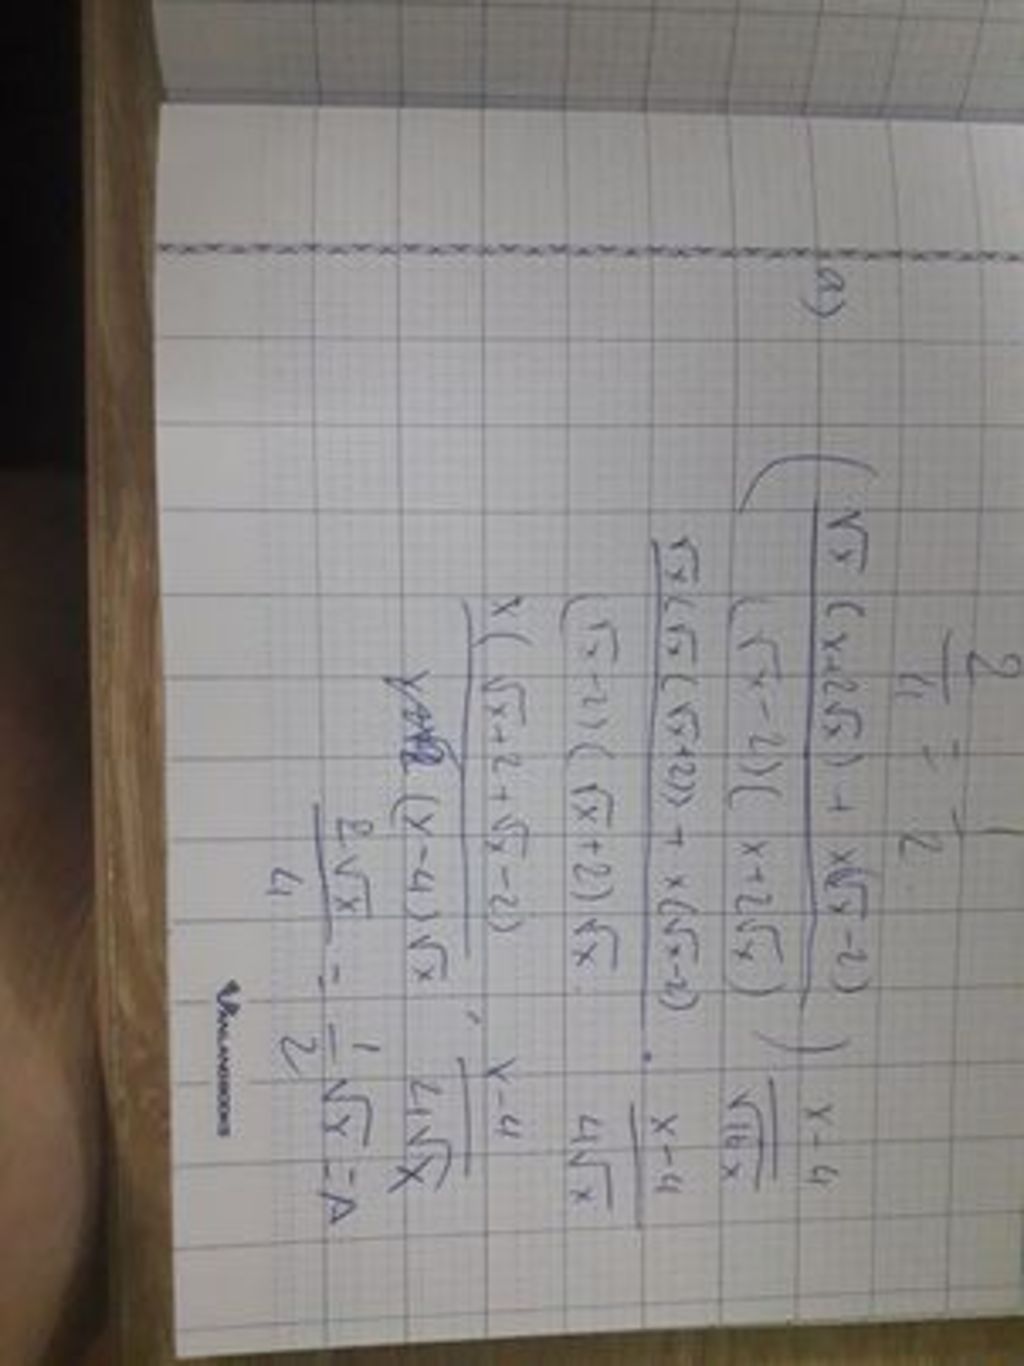 2/4 = 1/2
a) (√x (x+2√x) + x(√x-2) / (√x-2)(x+2√x)) x-4 / √16x
√x(√x(√x+2)) + x(√x-2) / (√x-2)(√x+2)√x . x-4 / 4√x
x(√x+2+√x-2) / (x-4)√x . x-4 / 4√x
2√x / 4 = 1/2 √x = A
VANLANGBOOKS